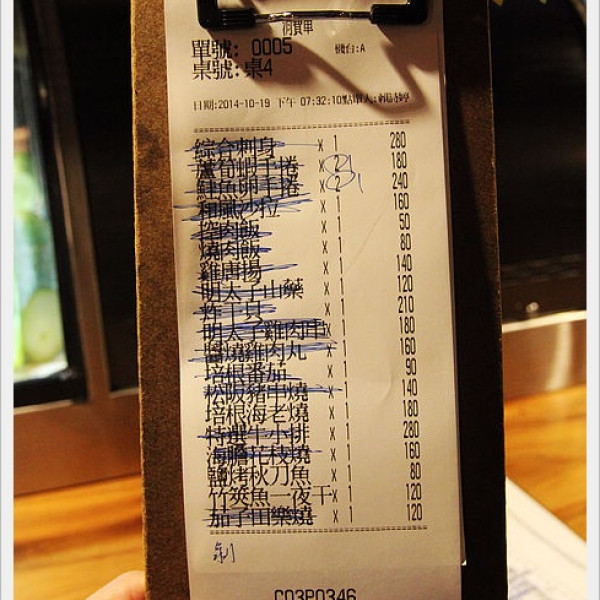 消費單
單號: 0005 機台:A
桌號:桌4
日期:2014-10-19 下午 07:32:10點單人:
綜合刺身 x 1 280
蘆筍蝦手捲 x 2 180
鮭魚卵手捲 x 2 240
和風沙拉 x 1 160
控肉飯 x 1 50
燒肉飯 x 1 80
雞唐揚 x 1 140
明太子山藥 x 1 120
炸干貝 x 1 210
明太子雞肉串 x 1 180
醬燒雞肉丸 x 1 160
培根番茄 x 1 90
松阪豬串燒 x 1 140
培根海老燒 x 1 180
特選牛小排 x 1 280
海膽花枝燒 x 1 160
鹽烤秋刀魚 x 1 80
竹筴魚一夜干x 1 120
茄子田樂燒 x 1 120
C03P0346